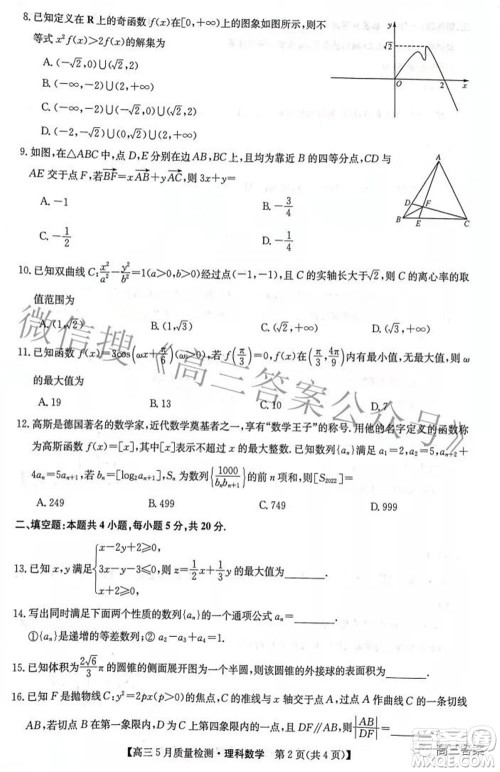 8. 已知定义在 R 上的奇函数 f(x) 在[0,+∞)上的图象如图所示,则不
等式 x²f(x)>2f(x)的解集为
A. (-√2,0)∪(√2,2)
B. (-∞,-2)∪(2,+∞)
C. (-∞,-2)∪(√2,2)
D. (-2,-√2)∪(0,√2)∪(2,+∞)
y
√2
O
2
x
9. 如图,在△ABC 中,点 D,E 分别在边 AB,BC 上,且均为靠近 B 的四等分点,CD 与
AE 交于点 F,若BF=xAB+yAC,则 3x+y=
A. -1
B. -3/4
C. -1/2
D. -1/4
A
D
F
B
E
C
10. 已知双曲线 C:x²/a²-y²/b²=1(a>0,b>0)经过点(-1,-1),且 C 的实轴长大于√2,则 C 的离心率的取
值范围为
A. (1,√2)
B. (1,√3)
C. (√2,+∞)
D. (√3,+∞)
11. 已知函数 f(x)=3cos(ωx+π/6)(ω>0),若 f(π/3)=0,f(x)在(π/3,4π/9)内有最小值,无最大值,则 ω
的最大值为
A. 19
B. 13
C. 10
D. 7
12. 高斯是德国著名的数学家,近代数学奠基者之一,享有“数学王子”的称号.用他的名字定义的函数
称为高斯函数 f(x)=[x],其中[x]表示不超过 x 的最大整数.已知数列{aₙ}满足 a₁=2,a₂=5,aₙ₊₂+
4aₙ=5aₙ₊₁,若 bₙ=[log₂aₙ₊₁],Sₙ 为数列{1000/(bₙbₙ₊₁)}的前 n 项和,则[S₂₀₂₂]=
A. 249
B. 499
C. 749
D. 999
二、填空题:本题共 4 小题,每小题 5 分,共 20 分.
13. 已知 x,y 满足{x-2y+2≥0, 3x-y-3≤0, y≥0, 则 z=1/2x+1/3y 的最大值为________.
14. 写出同时满足下面两个性质的数列{aₙ}的一个通项公式________.
①{aₙ}是递增的等差数列;②a₂-a₃+a₄=1.
15. 已知体积为2√6/3π的圆锥的侧面展开图为一个半圆,则该圆锥的外接球的表面积为________.
16. 已知 F 是抛物线 C:y²=2px(p>0)的焦点,C 的准线与 x 轴交于点 A,过点 A 的一条直线与 C 相切
于第四象限内一点 B,点 D 为 C 上第四象限的一点,且 DF∥AB,则|AB|/|DF|=________.
【高三 5 月质量检测·理科数学 第 2 页(共 4 页)】
微信搜《高三答案公众号》
高三答案